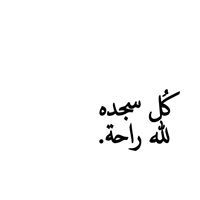 كُل سجده
لله راحة.